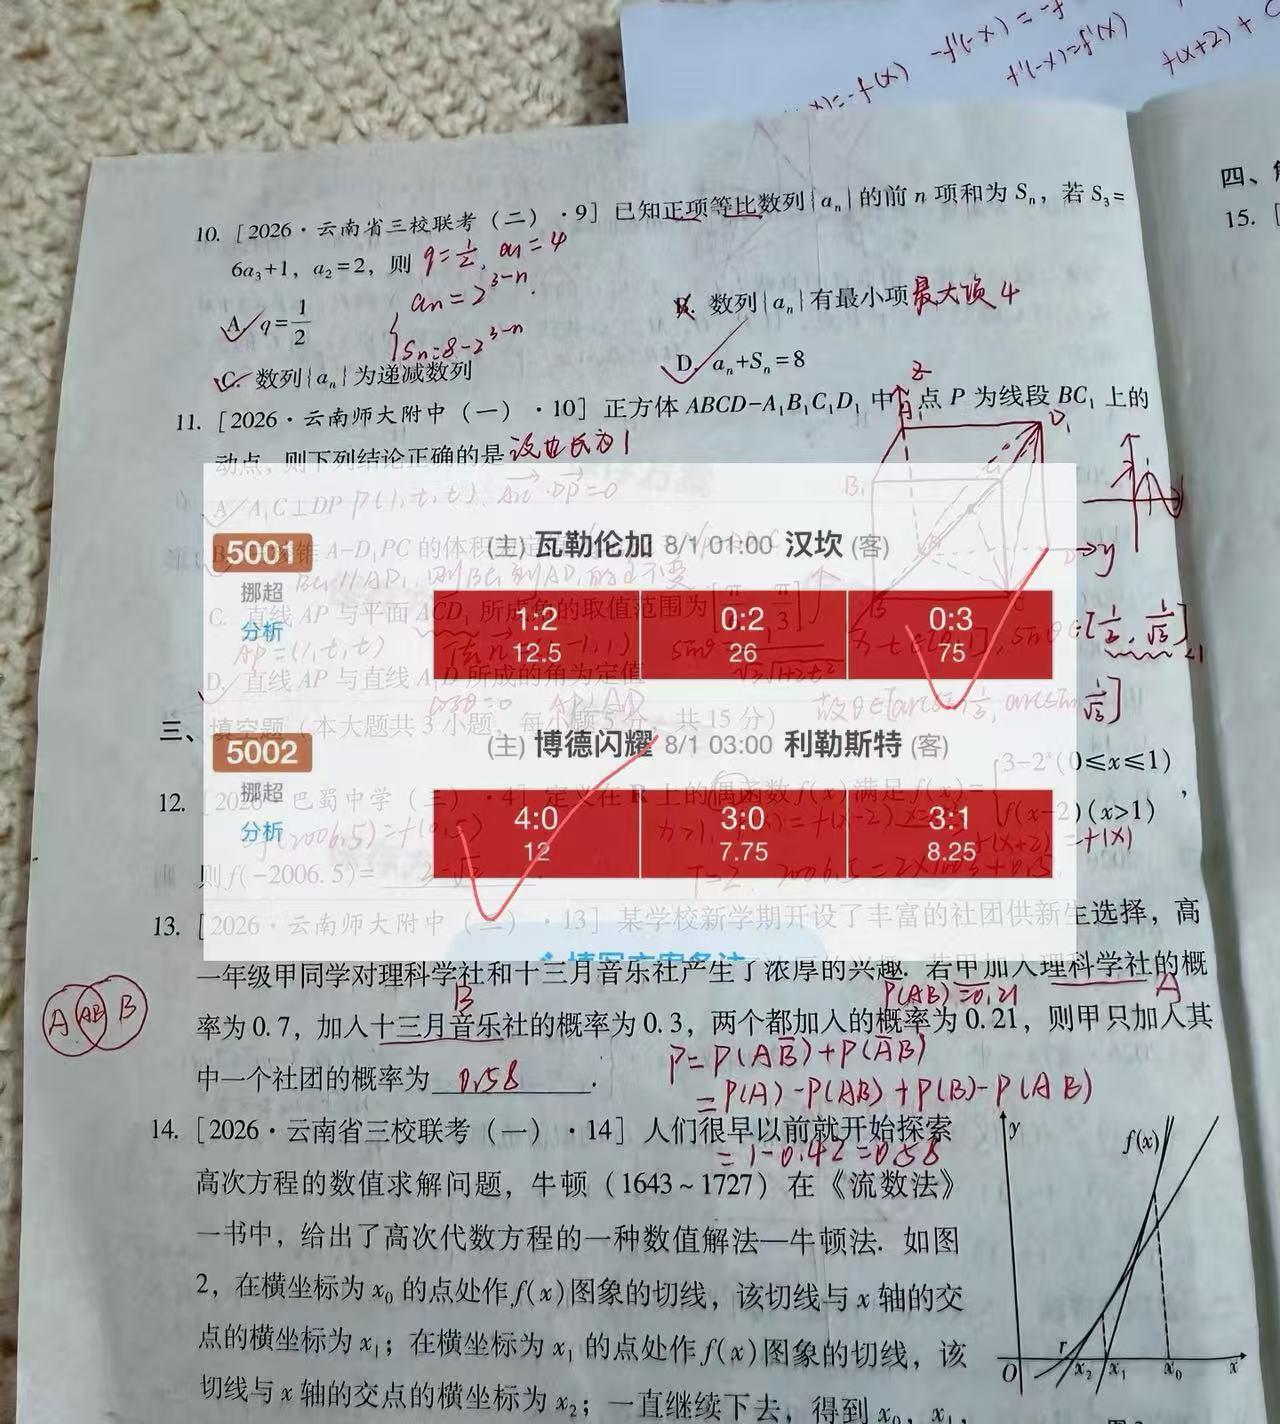 -f'(-x)=-f
f'(-x)=f'(x)
f(x+2)+
x)=-f(x)
四、
15.
10. [2026·云南省三校联考（二）·9] 已知正项等比数列{aₙ}的前 n 项和为 Sₙ，若 S₃=
6a₃+1，a₂=2，则 q=1/2, a₁=4
aₙ=2^(3-n).
A. q=1/2
B. 数列{aₙ}有最小项 最大项 4
Sₙ=8-2^(3-n)
C. 数列{aₙ}为递减数列
D. aₙ+Sₙ=8
11. [2026·云南师大附中（一）·10] 正方体 ABCD-A₁B₁C₁D₁ 中，点 P 为线段 BC₁ 上的
动点，则下列结论正确的是 设边长为1
A. A₁C⊥DP P(1,t,t).
5001
(主) 瓦勒伦加 8/1 01:00 汉坎 (客)
挪超
分析
1:2 0:2 0:3
12.5 26 75
C. 直线 AP 与平面 ACD₁ 所成角的取值范围为
AP=(1,t,t)
[1/2, 1/√3]
D. 直线 AP 与直线 A₁D 所成的角为定值
三、填空题（本大题共 3 小题，每小题 5 分，共 15 分）
5002
(主) 博德闪耀 8/1 03:00 利勒斯特 (客)
挪超
分析
4:0 3:0 3:1
12 7.75 8.25
12. [2026·巴蜀中学（三）·4] 定义在 R 上的偶函数 f(x) 满足 f(x)={3-2ˣ(0≤x≤1)
f(x-2)(x>1)，
f(x+2)=f(x)
则 f(-2006.5)= 2-√2
13. [2026·云南师大附中（二）·13] 某学校新学期开设了丰富的社团供新生选择，高
一年级甲同学对理科学社和十三月音乐社产生了浓厚的兴趣. 若甲加入理科学社的概
B P(AB)=0.21 A
A AB B
率为 0.7，加入十三月音乐社的概率为 0.3，两个都加入的概率为 0.21，则甲只加入其
P=P(AB̅)+P(A̅B)
中一个社团的概率为 0.58 .
=P(A)-P(AB)+P(B)-P(AB)
14. [2026·云南省三校联考（一）·14] 人们很早以前就开始探索
=1-0.42=0.58
高次方程的数值求解问题，牛顿（1643~1727）在《流数法》
一书中，给出了高次代数方程的一种数值解法—牛顿法. 如图
2，在横坐标为 x₀ 的点处作 f(x) 图象的切线，该切线与 x 轴的交
点的横坐标为 x₁；在横坐标为 x₁ 的点处作 f(x) 图象的切线，该
切线与 x 轴的交点的横坐标为 x₂；一直继续下去，得到 x₀，x₁，
y
f(x)
O r x₂ x₁ x₀ x